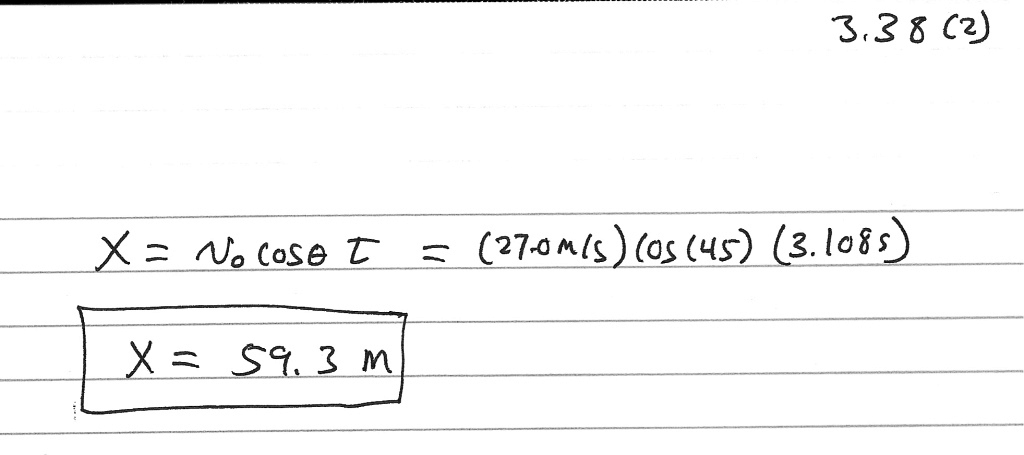 3.38 (2)
X = v₀ cosθ t = (27.0 m/s) cos (45) (3.108 s)
X = 59.3 m